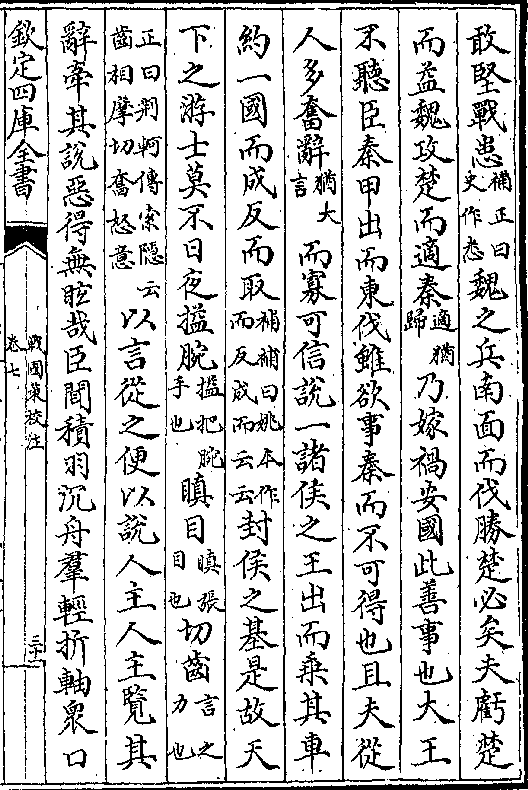 敢堅戰患補正曰史作悉魏之兵南面而伐勝楚必矣夫虧楚
而益魏攻楚而適秦適猶歸乃嫁禍安國此善事也大王
不聽臣秦甲出而東伐雖欲事秦而不可得也且夫從
人多奮辭猶大言而寡可信說一諸侯之王出而乘其車
約一國而成反而取補補曰姚本作而反成而云云封侯之基是故天
下之游士莫不日夜搤腕搤把腕手也瞋目瞋張目也切齒言之力也
正曰荆軻傳索隱云齒相摩切奮怒意以言從之便以說人主人主覽其
辭牽其說惡得無眩哉臣聞積羽沉舟羣輕折軸衆口
欽定四庫全書
戰國策校注
卷七
三十一